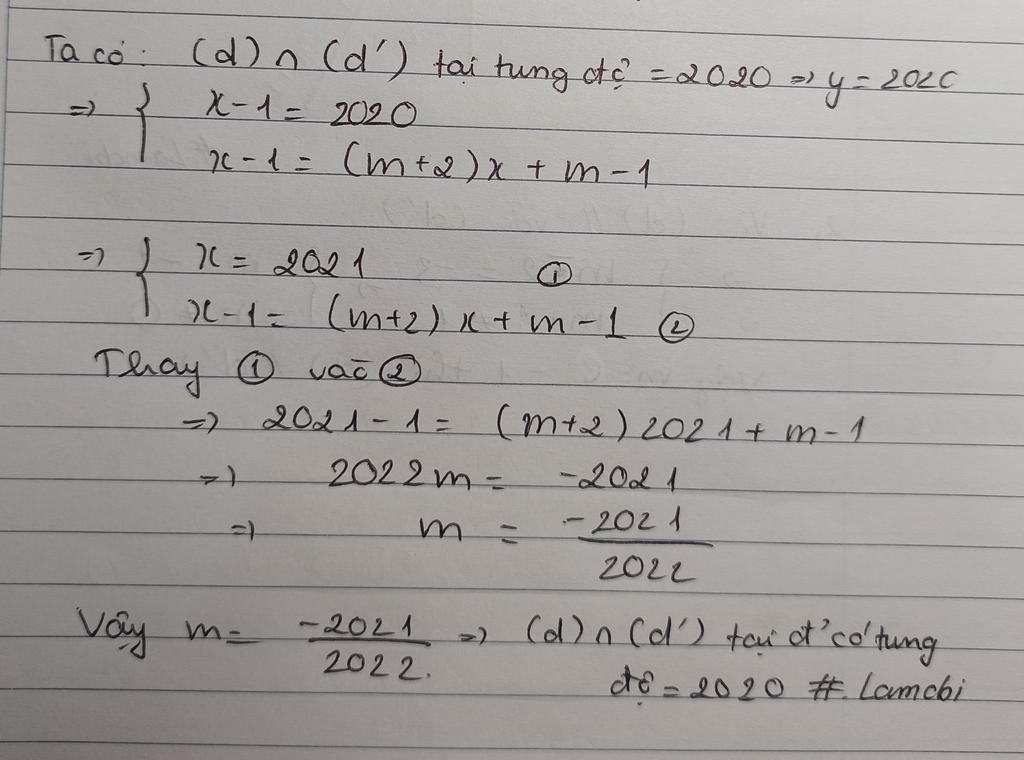 Ta có: (d) ∩ (d') tại tung độ = 2020 => y = 2020
=> { x - 1 = 2020
x - 1 = (m+2)x + m - 1
=> { x = 2021 ①
x - 1 = (m+2) x + m - 1 ②
Thay ① vào ②
=> 2021 - 1 = (m+2) 2021 + m - 1
=> 2022m = -2021
=> m = -2021
2022
Vậy m = -2021 => (d) ∩ (d') tại đ' có tung
2022. độ = 2020 #. Lamchi